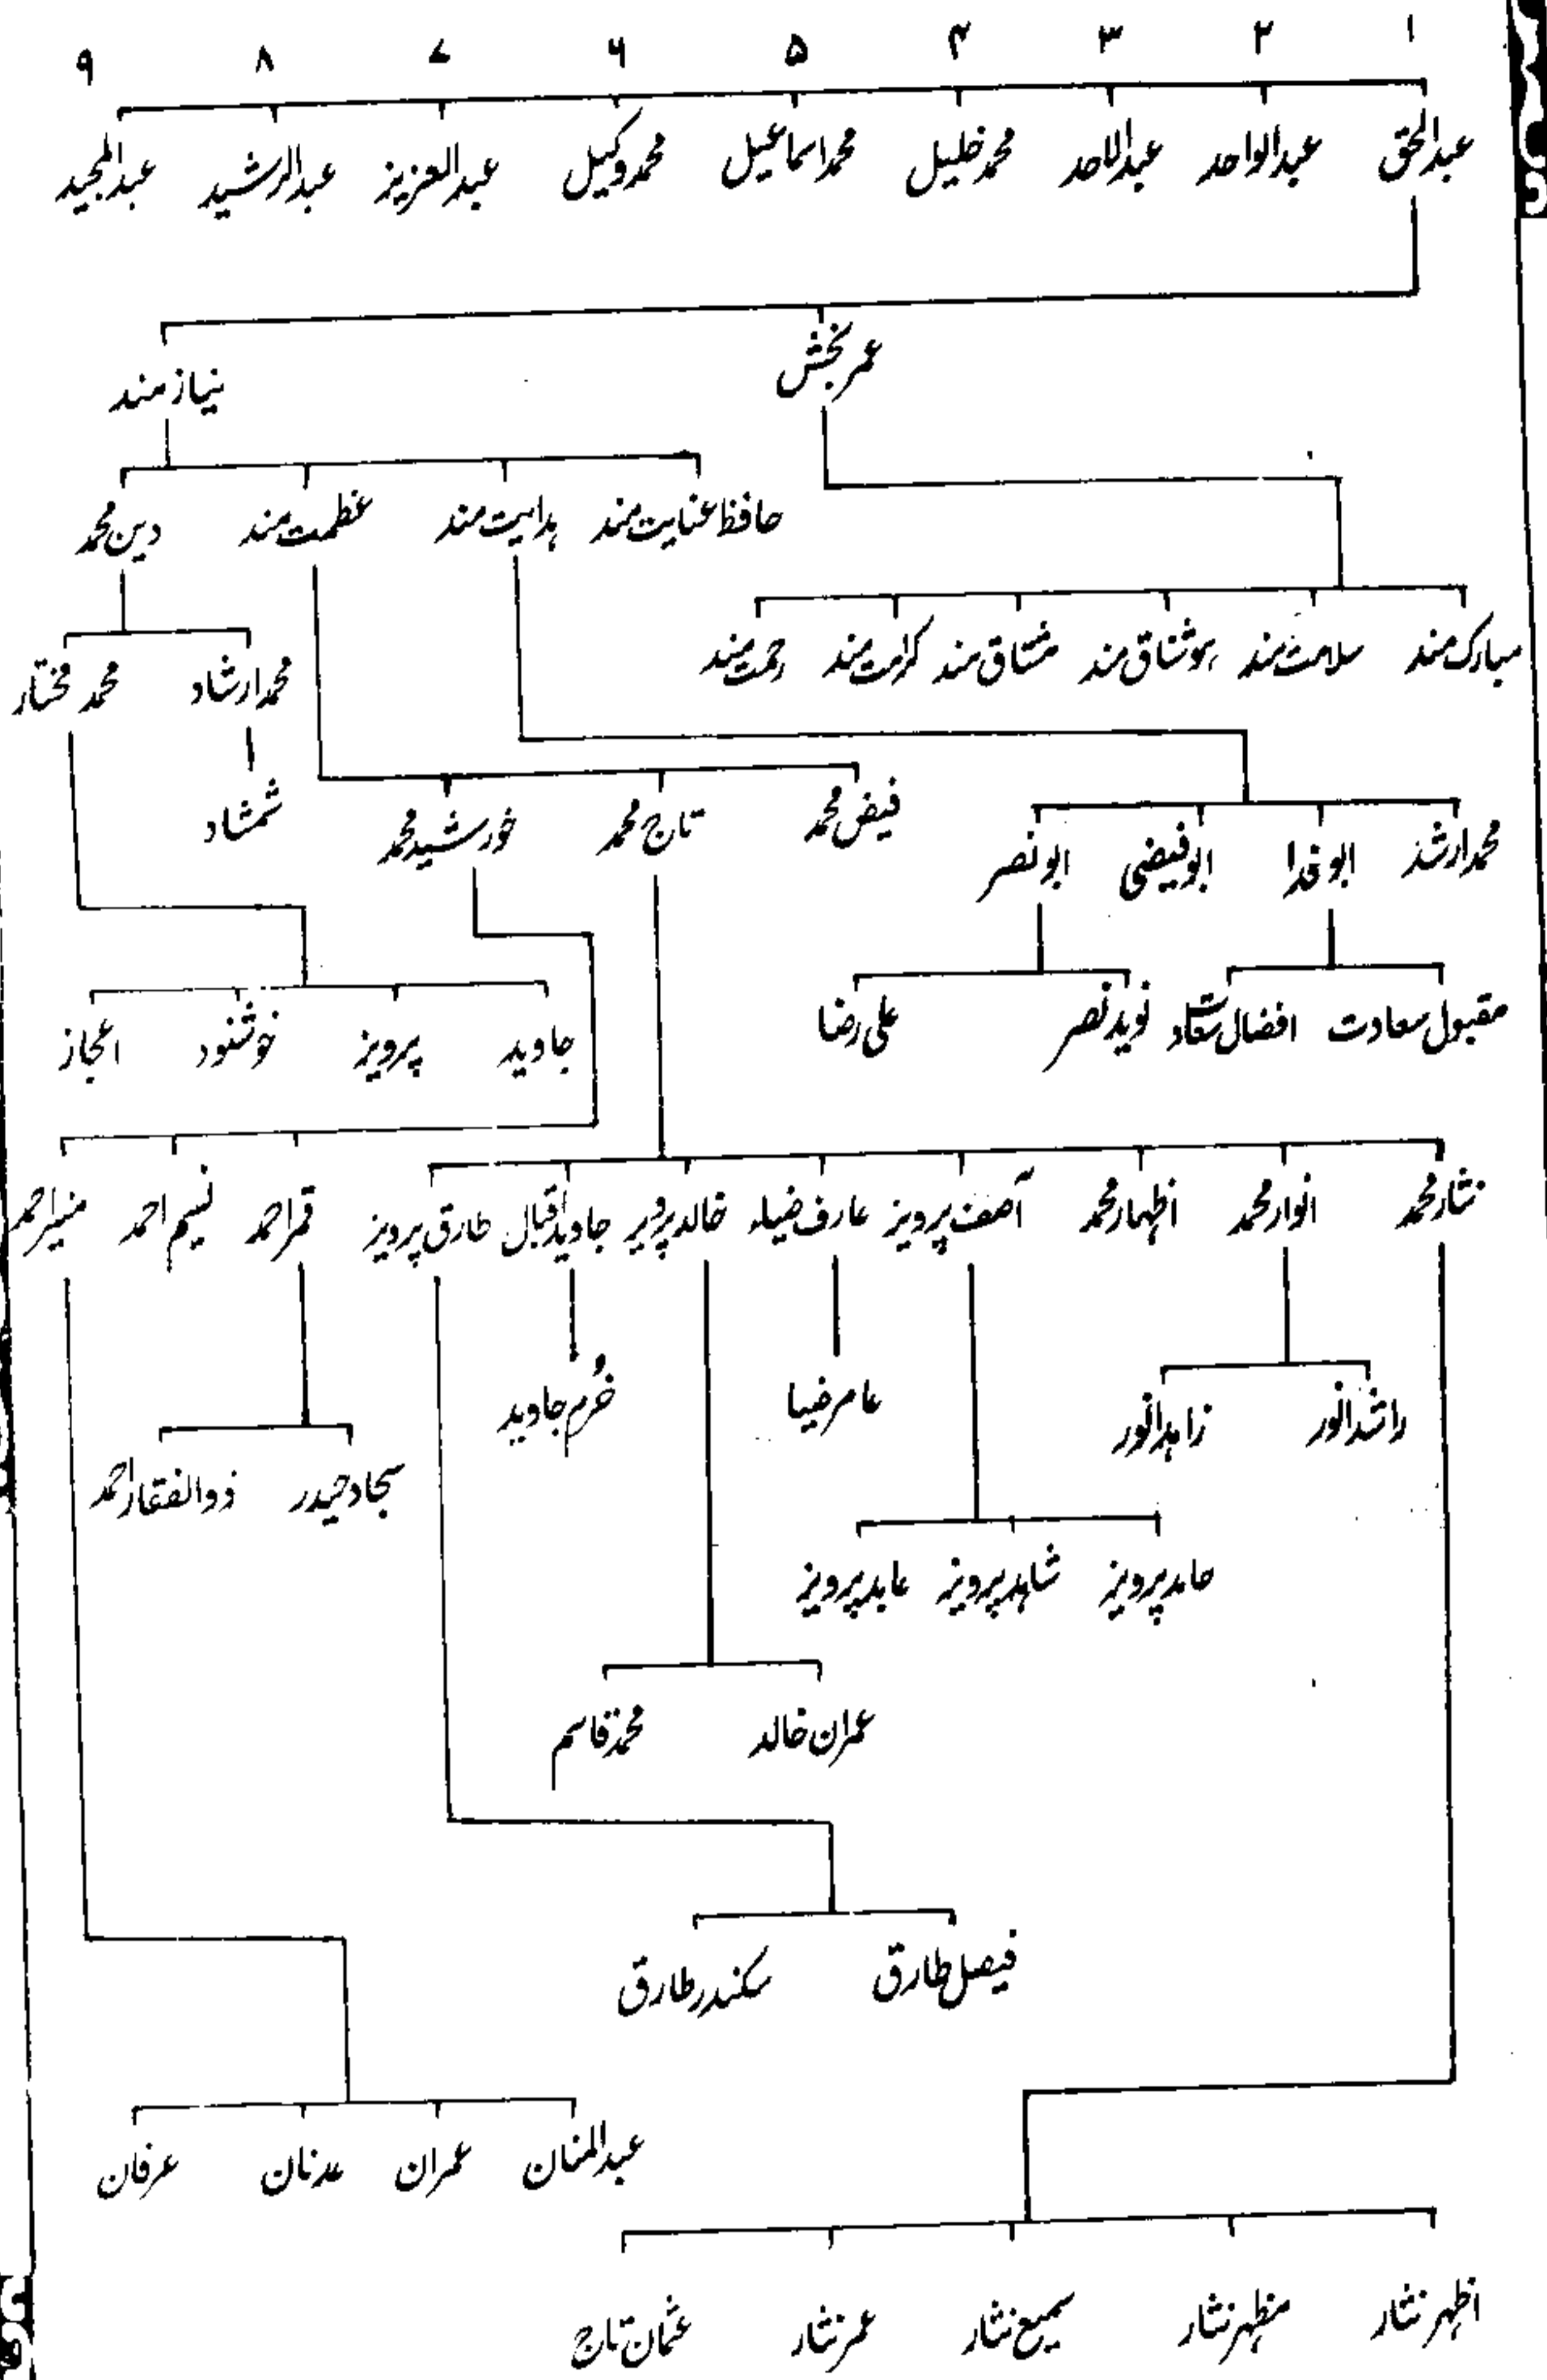 ۱ ۲ ۳ ۴ ۵ ۶ ۷ ۸ ۹
عبدالحق عبدالواحد عبدالاحد محمد خلیل محمد اسماعیل محمد وکیل عبدالعزیز عبدالرشید عبدالمجید
عمر بخش نیاز مند
حافظ عنایت مند ہدایت مند عظمت مند دین محمد
مبارک مند سلامت مند مشتاق مند کرامت مند رحمت مند
محمد ارشاد محمد مختار
فیض محمد تاج محمد خورشید محمد شمشاد
محمد ارشد ابو فدا ابو فیضی ابو نصر
مقبول سعادت افضال سعادت نوید نصر علی رضا
جاوید پرویز خوشنود اعجاز
نثار محمد انوار محمد اظہار محمد آصف پرویز عارف ضیاء خالد پرویز جاوید اقبال طارق پرویز قمر احمد نسیم احمد منیر احمد
راشد انور زاہد انور عامر ضیا خرم جاوید
سجاد حیدر ذوالفقار احمد
حامد پرویز شاہد پرویز عابد پرویز
عمران خالد محمد قاسم
فیصل طارق سکندر طارق
عبدالمنان عمران عدنان عرفان
اظہر نثار مظہر نثار سمیع نثار عمر نثار عثمان تاج